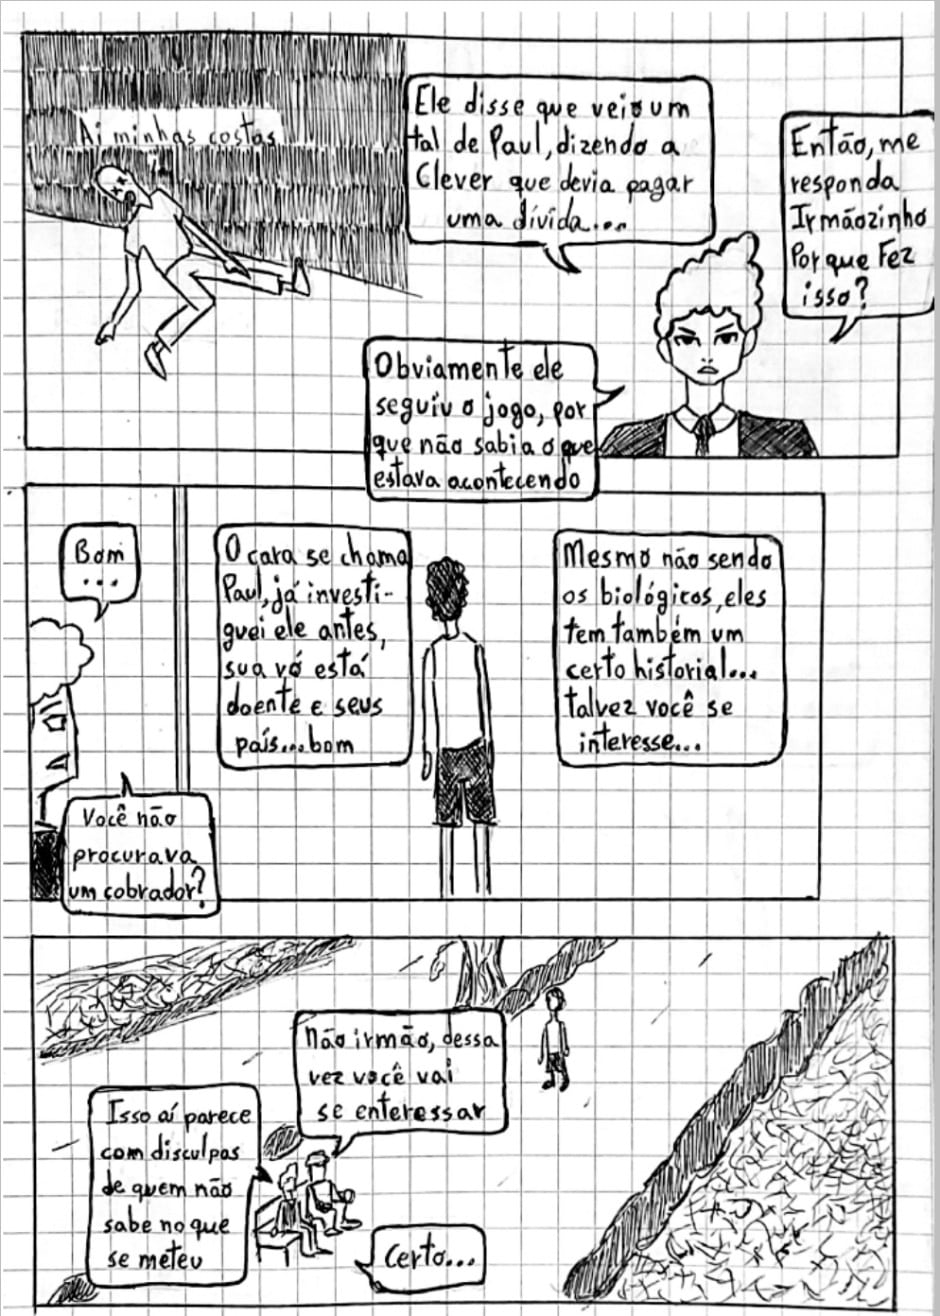 Ai minhas costas
Ele disse que veio um
tal de Paul, dizendo a
Clever que devia pagar
uma dívida...
Então, me
responda
Irmãozinho
Por que Fez
isso?
Obviamente ele
seguiu o jogo, por
que não sabia o que
estava acontecendo
Bom
...
Você não
procurava
um cobrador?
O cara se chama
Paul, já investi-
guei ele antes,
sua vó está
doente e seus
país...bom
Mesmo não sendo
os biológicos, eles
tem também um
certo historial...
talvez você se
interesse...
Não irmão, dessa
vez você vai
se enteressar
Isso aí parece
com disculpas
de quem não
sabe no que
se meteu
Certo...